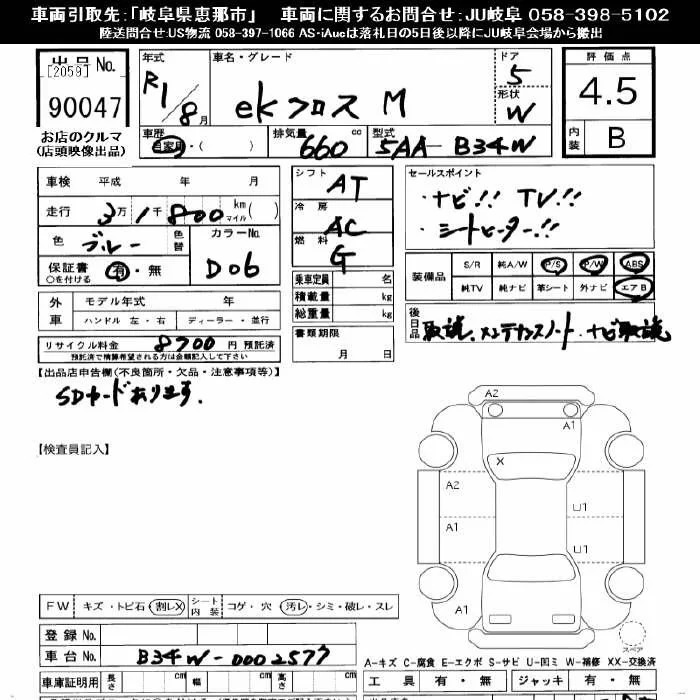 車両引取先:「岐阜県恵那市」 車両に関するお問合せ:JU岐阜 058-398-5102
陸送問合せ:US物流 058-397-1066 AS・iAucは落札日の5日後以降にJU岐阜会場から搬出
出品No.
[2059]
90047
お店のクルマ
(店頭映像出品)
年式
R1/8月
車名・グレード
ekクロス M
ドア
5
形状
W
評価点
4.5
内装
B
車歴
自家用・( )
排気量
660 cc
型式
5AA-B34W
車検 平成 年 月
走行 3万1千800 km マイル( )
色 ブルー 色替
カラーNo.
D06
保証書 ○を付ける 有・無
外車
モデル年式 年
ハンドル 左・右 ディーラー・並行
リサイクル料金 8700円 預託済
預託済で精算希望される方は金額記入して下さい
シフト AT
冷房 AC
燃料 G
乗車定員 名
積載量 kg
総重量 kg
書類期限
月 日
セールスポイント
・ナビ!! TV!!
・シートヒーター!!
装備品
S/R 純A/W P/S P/W ABS
純TV 純ナビ 革シート 外ナビ エアB
後日品
取説、メンテナンスノート、ナビ取説
【出品店申告欄(不良箇所・欠品・注意事項等)】
SDカードあります。
【検査員記入】
A2
A1
X
A2
U1
A1
U1
A1
スペア
FW キズ・トビ石 割レX シート内装 コゲ・穴 汚レ・シミ・破レ・スレ
登録No.
車台No. B34W-0002577
A-キズ C-腐食 E-エクボ S-サビ U-凹ミ W-補修 XX-交換済
車庫証明用 長さ cm 幅 cm 高さ cm
工具 有・無 ジャッキ 有・無